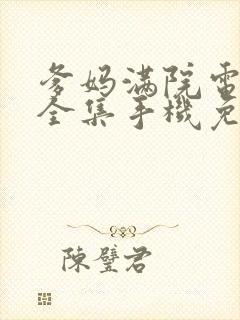 爹妈满院電
全集手機免
陳璧君